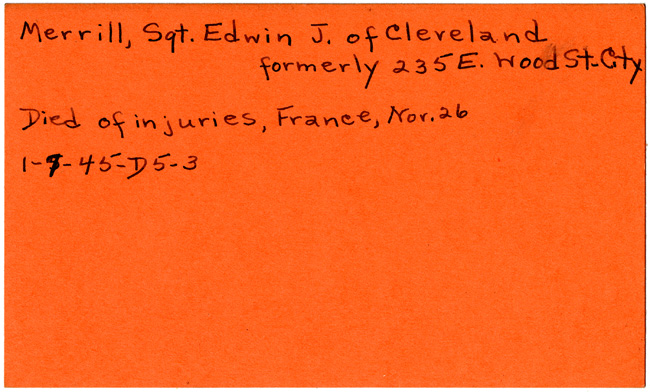 Merrill, Sgt. Edwin J. of Cleveland
formerly 235 E. Wood St. City
Died of injuries, France, Nov. 26
1-9-45-D5-3